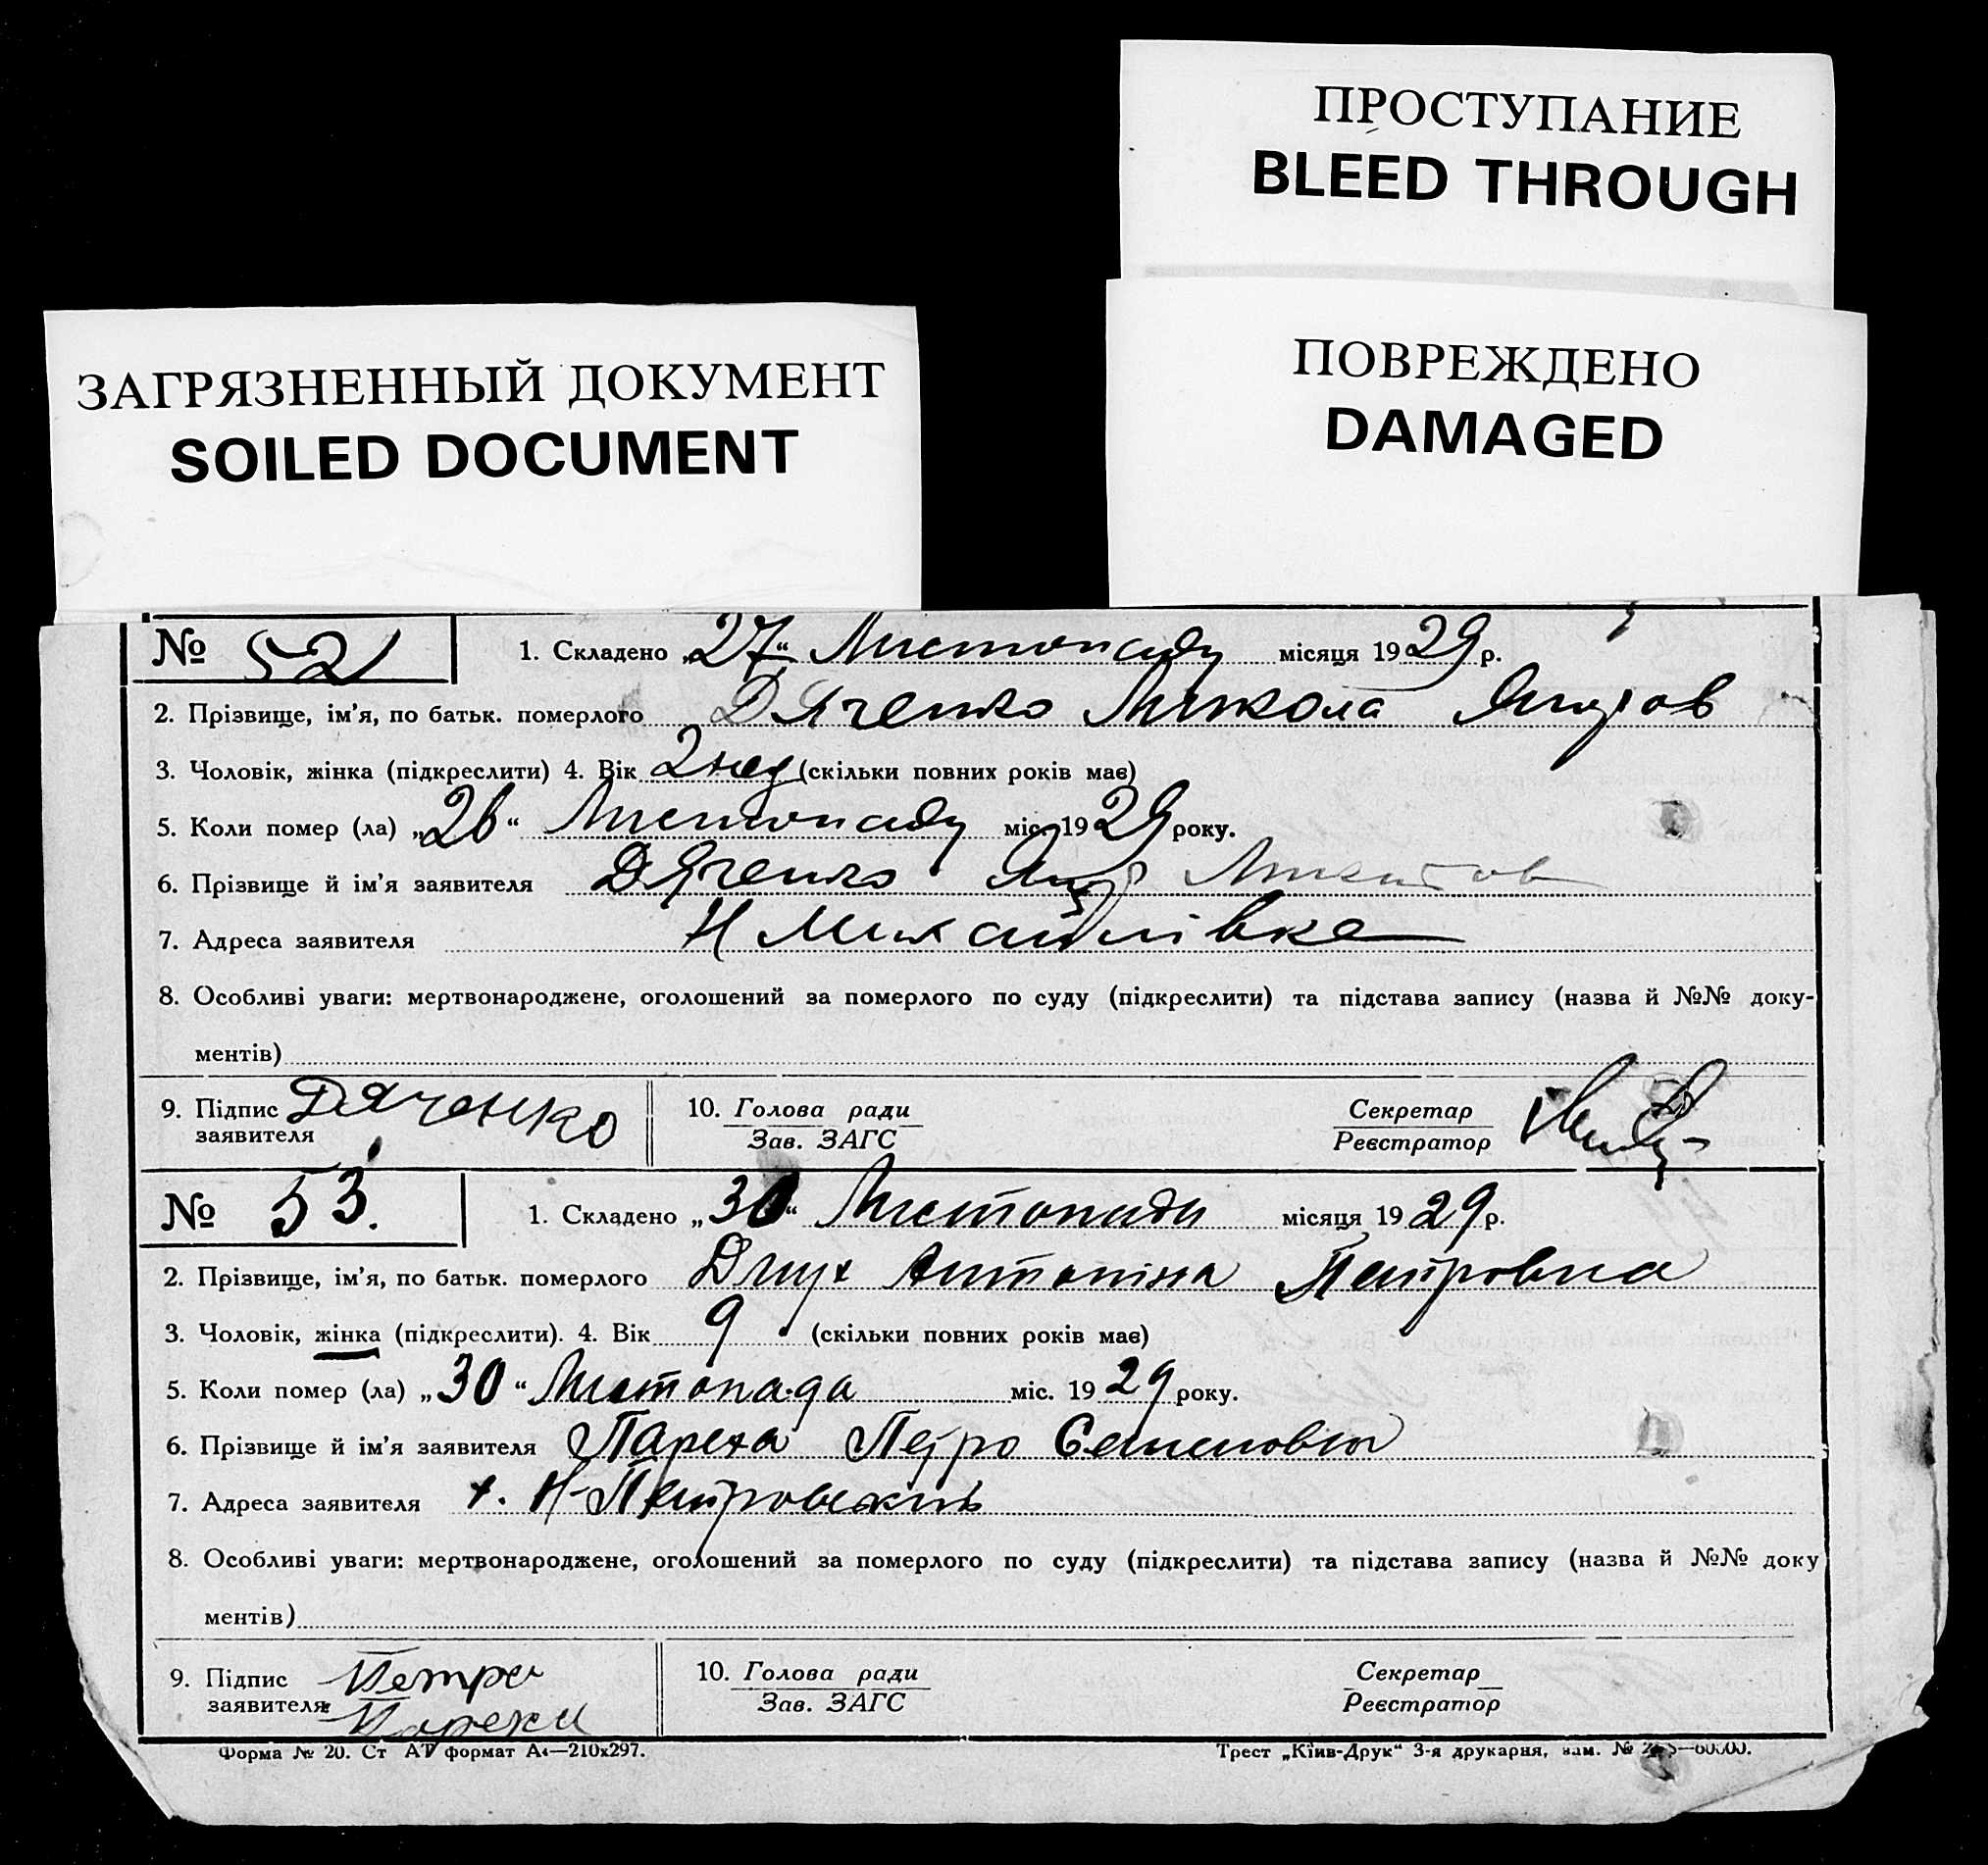 ПРОСТУПАНИЕ
BLEED THROUGH
ЗАГРЯЗНЕННЫЙ ДОКУМЕНТ
SOILED DOCUMENT
ПОВРЕЖДЕНО
DAMAGED
№ 52 1. Складено „27“ Листопаду місяця 1929 р.
2. Прізвище, ім’я, по батьк. померлого Дяченко Микола
3. Чоловік, жінка (підкреслити) 4. Вік 2 нед (скільки повних років має)
5. Коли помер (ла) „26“ Листопаду міс. 1929 року.
6. Прізвище й ім’я заявителя Дяченко
7. Адреса заявителя Н Михайлівка
8. Особливі уваги: мертвонароджене, оголошений за померлого по суду (підкреслити) та підстава запису (назва й №№ доку-
ментів)
9. Підпис заявителя Дяченко 10. Голова ради Секретар
Зав. ЗАГС Реєстратор
№ 53. 1. Складено „30“ Листопада місяця 1929 р.
2. Прізвище, ім’я, по батьк. померлого Антоніна Петровна
3. Чоловік, жінка (підкреслити). 4. Вік 9 (скільки повних років має)
5. Коли помер (ла) „30“ Листопада міс. 1929 року.
6. Прізвище й ім’я заявителя Пареха Петро Семенович
7. Адреса заявителя х. Н-Петровський
8. Особливі уваги: мертвонароджене, оголошений за померлого по суду (підкреслити) та підстава запису (назва й №№ доку
ментів)
9. Підпис заявителя Петро 10. Голова ради Секретар
Зав. ЗАГС Реєстратор
Форма № 20. Ст АТ формат А4—210х297. Трест „Київ-Друк“ 3-я друкарня, зам. №